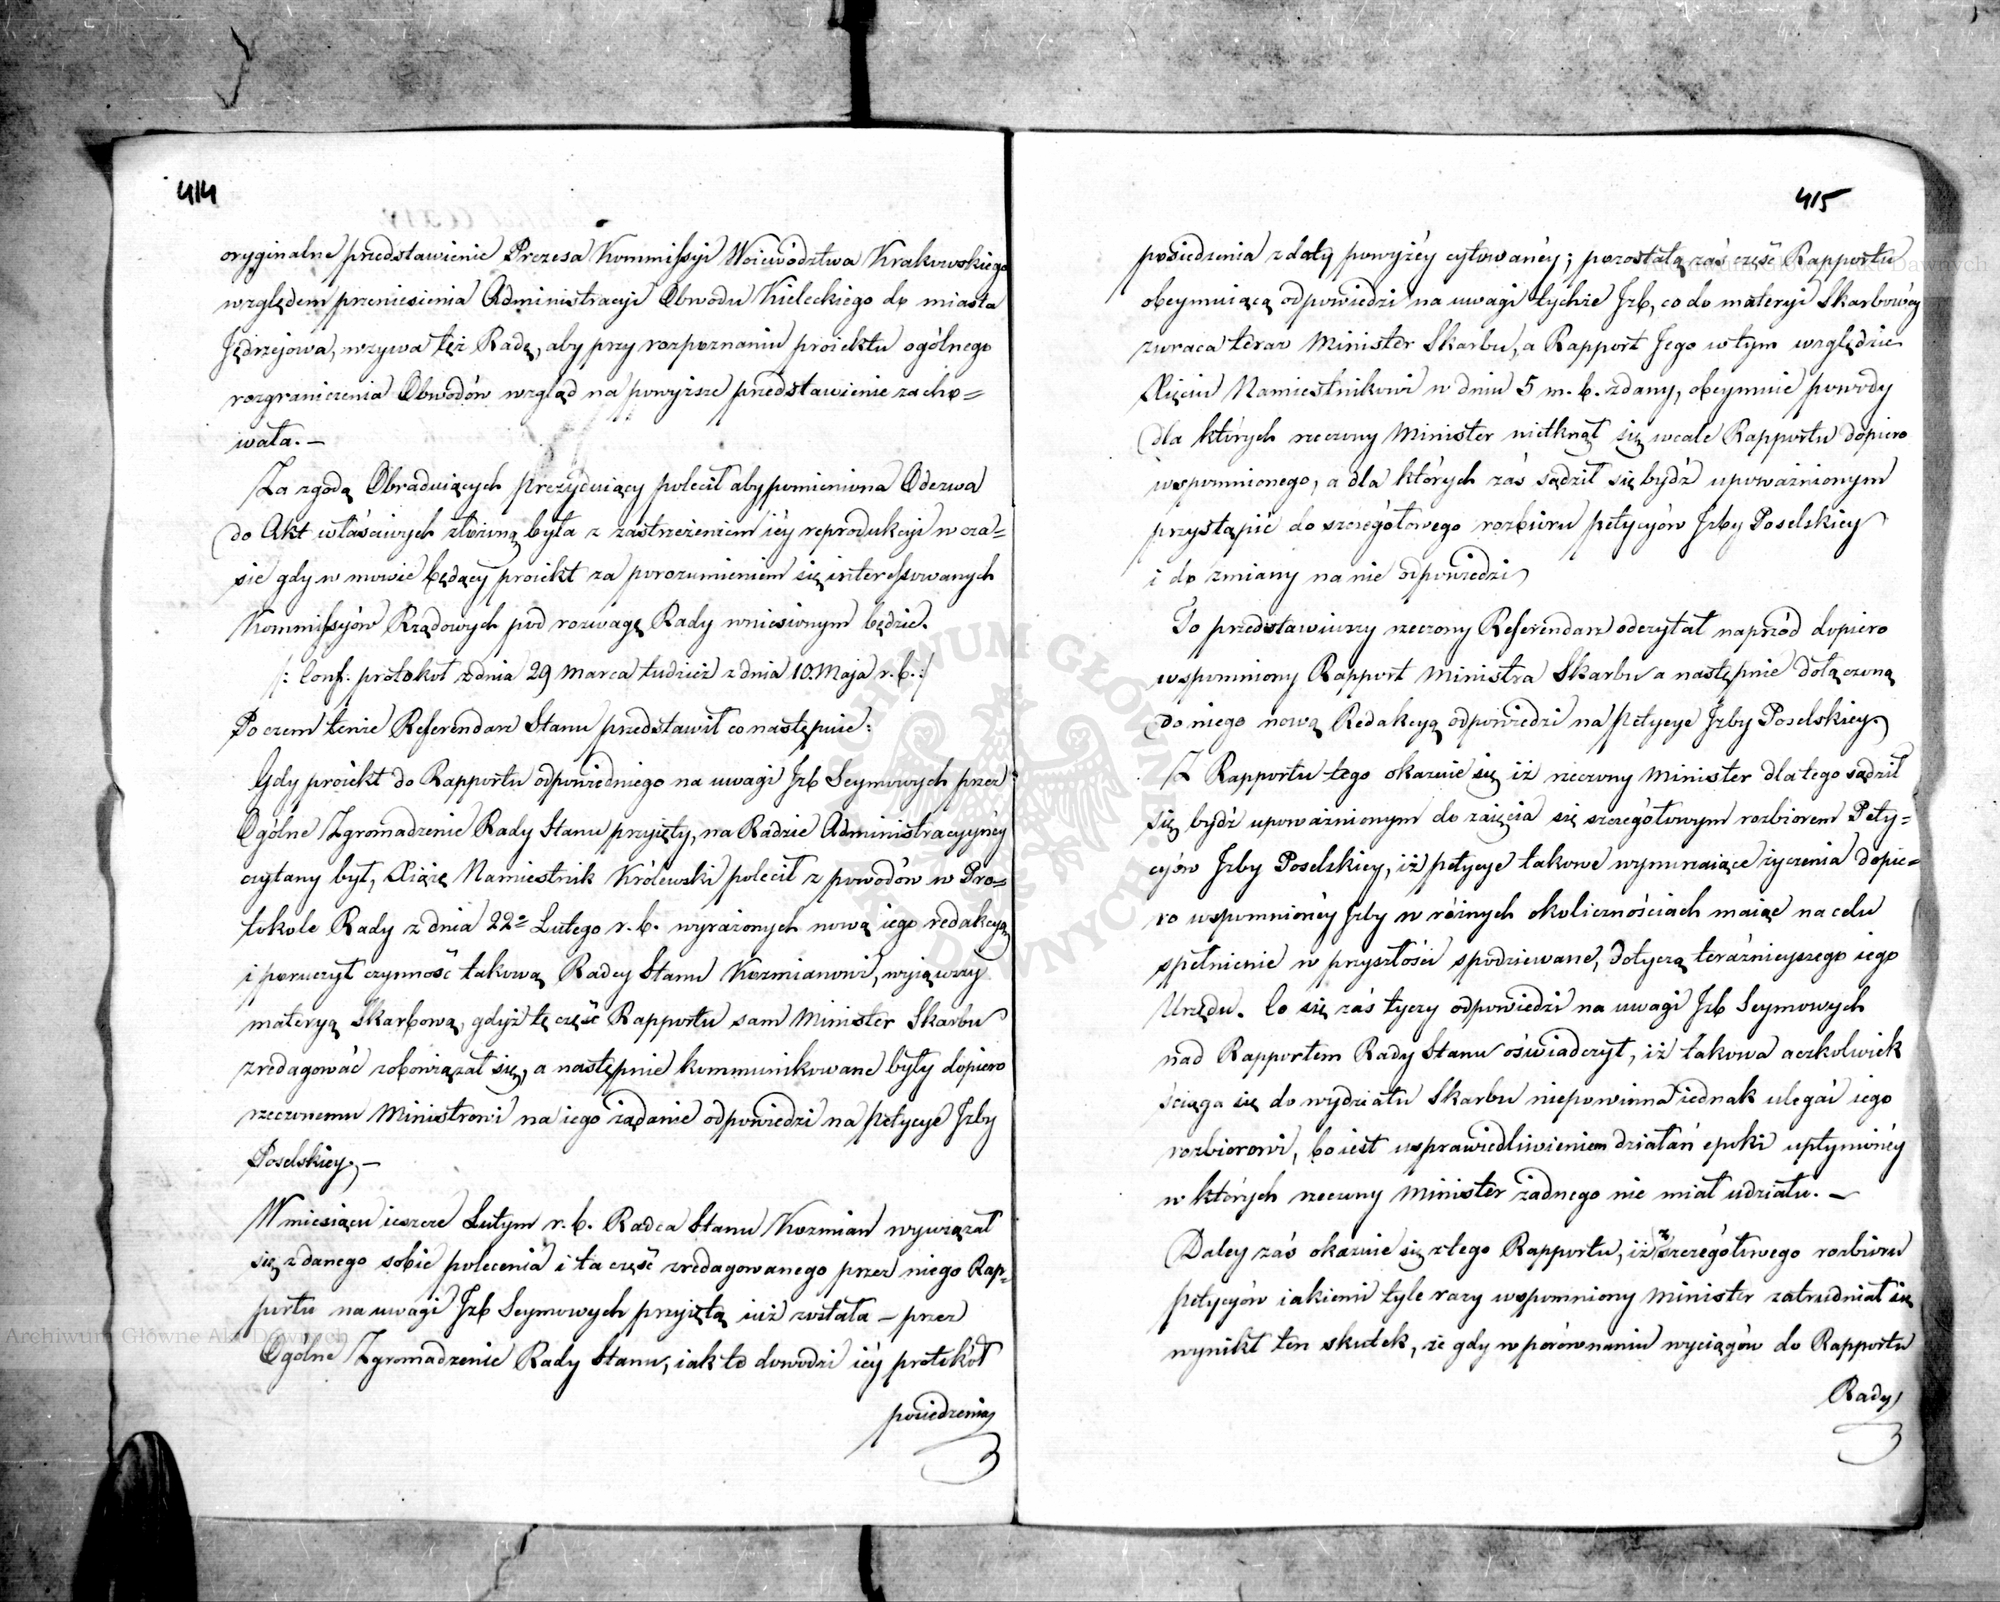 414
oryginalne przedstawienie Prezesa Kommissyi Woiewództwa Krakowskiego
względem przeniesienia Administracyi Obwodu Kieleckiego do miasta
Jędrzejowa, wzywa też Radę, aby przy rozpoznaniu proiektu ogólnego
rozgraniczenia Obwodów wzgląd na powyższe przedstawienie zacho=
wała. —
Za zgodą Obraduiących Prezyduiący polecił aby pomieniona Odezwa
do Akt właściwych złożoną była z zastrzeżeniem iéy reprodukcyi w cza=
sie gdy w mowie będący proiekt za porozumieniem się interessowanych
Kommissyów Rządowych pod rozwagę Rady wniesionym będzie.
/: Conf. protokół z dnia 29 Marca tudzież z dnia 10. Maja r. b. :/
Poczem tenże Referendarz Stanu przedstawił co następuie:
Gdy proiekt do Rapportu odpowiedniego na uwagi Izb Seymowych przez
Ogólne Zgromadzenie Rady Stanu przyięty, na Radzie Administracyynéy
czytany był, Xiążę Namiestnik Królewski polecił z powodów w Pro=
tokole Rady z dnia 22= Lutego r. b. wyrażonych nową iego redakcyą
i poruczył czynność takową Radcy Stanu Kozmianowi, wyiąwszy
materyą Skarbową, gdyż tę część Rapportu sam Minister Skarbu
zredagować zobowiązał się, a następnie kommunikowane były dopiero
rzeczonemu Ministrowi na iego żądanie odpowiedzi na petycye Izby
Poselskiey. —
W miesiącu ieszcze Lutym r. b. Radca Stanu Kozmian wywiązał
się z danego sobie polecenia i ta część zredagowanego przez niego Rap=
portu na uwagi Izb Seymowych przyjętą iuż została — przez
Ogólne Zgromadzenie Rady Stanu, iak to dowodzi iéy protokół
posiedzenia
415
posiedzenia z daty powyżéy cytowanéy; pozostałą zaś część Rapportu
obeymuiącą odpowiedzi na uwagi tychże Izb, co do materyi Skarbowéy
zwraca teraz Minister Skarbu, a Rapport Jego w tym względzie
Xięciu Namiestnikowi w dniu 5 m. b. zdany, obeymuie powody
dla których rzeczony Minister nietknął się wcale Rapportu dopiero
wspomnionego, a dla których zaś sądził się bydź upoważnionym
przystąpić do szczegółowego rozbioru petycyów Izby Poselskiey
i do zmiany na nie odpowiedzi
To przedstawiwszy rzeczony Referendarz odczytał naprzód dopiero
wspomniony Rapport Ministra Skarbu a następnie dołączoną
do niego nową Redakcyą odpowiedzi na petycye Izby Poselskiey.
Z Rapportu tego okazuie się iż rzeczony Minister dla tego sądził
się bydź upoważnionym do zaięcia się szczegółowym rozbiorem Pety=
cyów Izby Poselskiey, iż petycye takowe wynurzaiące życzenia dopie=
ro wspomnionéy Izby w różnych okolicznościach maiąc na celu
spełnienie w przyszłości spodziewane, dotyczą teraźnieyszego iego
Urzędu. Co się zaś tyczy odpowiedzi na uwagi Izb Seymowych
nad Rapportem Rady Stanu oświadczył, iż takowa aczkolwiek
ściąga się do wydziału Skarbu niepowinna iednak ulegać iego
rozbiorowi, bo iest usprawiedliwieniem działań epoki upłynionéy
w których rzeczony Minister żadnego nie miał udziału. —
Daley zaś okazuie się z tego Rapportu, iż z szczegółowego rozbioru
petycyów iakiemi tyle razy wspomniony Minister zatrudniał się
wynikł ten skutek, że gdy w porównaniu wyciągów do Rapportu
Rady
Archiwum Główne Akt Dawnych